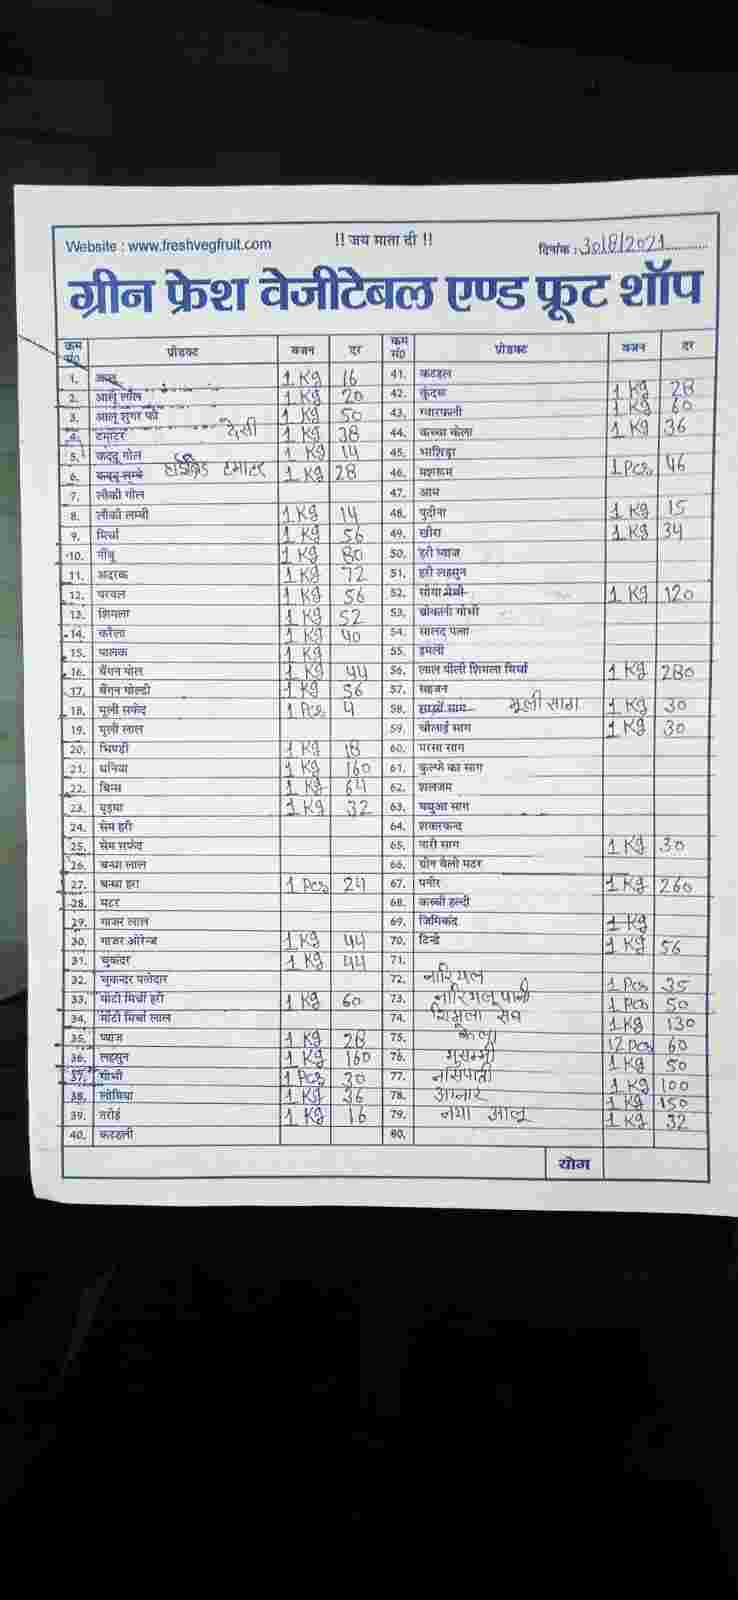 !! जय माता दी !!
Website : www.freshvegfruit.com
दिनांक : 30/8/2021
ग्रीन फ्रेश वेजीटेबल एण्ड फ्रूट शॉप
क्रम सं0 प्रोडक्ट वजन दर
1. आलू 1 Kg 16
2. आलू लाल 1 Kg 20
3. आलू शुगर फ्री 1 Kg 50
4. टमाटर देसी 1 Kg 38
5. कददू गोल 1 Kg 14
6. कददू लम्बे हाईब्रिड टमाटर 1 Kg 28
7. लौकी गोल
8. लौकी लम्बी 1 Kg 14
9. मिर्चा 1 Kg 56
10. नींबू 1 Kg 80
11. अदरक 1 Kg 72
12. परवल 1 Kg 56
13. शिमला 1 Kg 52
14. करैला 1 Kg 40
15. पालक 1 Kg
16. बैंगन गोल 1 Kg 44
17. बैंगन गोल्डी 1 Kg 56
18. मूली सफेद 1 Pcs 4
19. मूली लाल
20. भिण्डी 1 Kg 18
21. धनिया 1 Kg 160
22. बिन्स 1 Kg 64
23. घुइया 1 Kg 32
24. सेम हरी
25. सेम सफेद
26. बन्धा लाल
27. बन्धा हरा 1 Pcs 24
28. मटर
29. गाजर लाल
30. गाजर ओरेन्ज 1 Kg 44
31. चुकन्दर 1 Kg 44
32. चुकन्दर पत्तेदार
33. मोटी मिर्चा हरी 1 Kg 60
34. मोटी मिर्चा लाल
35. प्याज 1 Kg 28
36. लहसुन 1 Kg 160
37. गोभी 1 Pcs 30
38. लोबिया 1 Kg 36
39. तरोई 1 Kg 16
40.
क्रम सं0 प्रोडक्ट वजन दर
41. कटहल
42. कुंदरू 1 Kg 28
43. ग्वारफली 1 Kg 60
44. कच्चा केला 1 Kg 36
45.
46. मशरूम 1 Pcs 46
47. आम
48. पुदीना 1 Kg 15
49. खीरा 1 Kg 34
50. हरी प्याज
51. हरी लहसुन
52. सोया मेथी 1 Kg 120
53. ब्रोकली गोभी
54. सालद पत्ता
55. इमली
56. लाल पीली शिमला मिर्चा 1 Kg 280
57. सहजन
58. सरसों साग मूली साग 1 Kg 30
59. चौलाई साग 1 Kg 30
60. परसा साग
61. कुल्फे का साग
62. शलजम
63. बथुआ साग
64. शकरकन्द
65. नारी साग 1 Kg 30
66. ग्रीन वैली मटर
67. पनीर 1 Kg 260
68. कच्ची हल्दी
69. जिमिकंद 1 Kg
70. टिन्डे 1 Kg 56
71.
72. नारियल 1 Pcs 35
73. नारियल पानी 1 Pcs 50
74. शिमला सेव 1 Kg 130
75. केला 12 Pcs 60
76. मुसम्मी 1 Kg 50
77. नासपाती 1 Kg 100
78. आनार 1 Kg 150
79. नया आलू 1 Kg 32
80.
योग